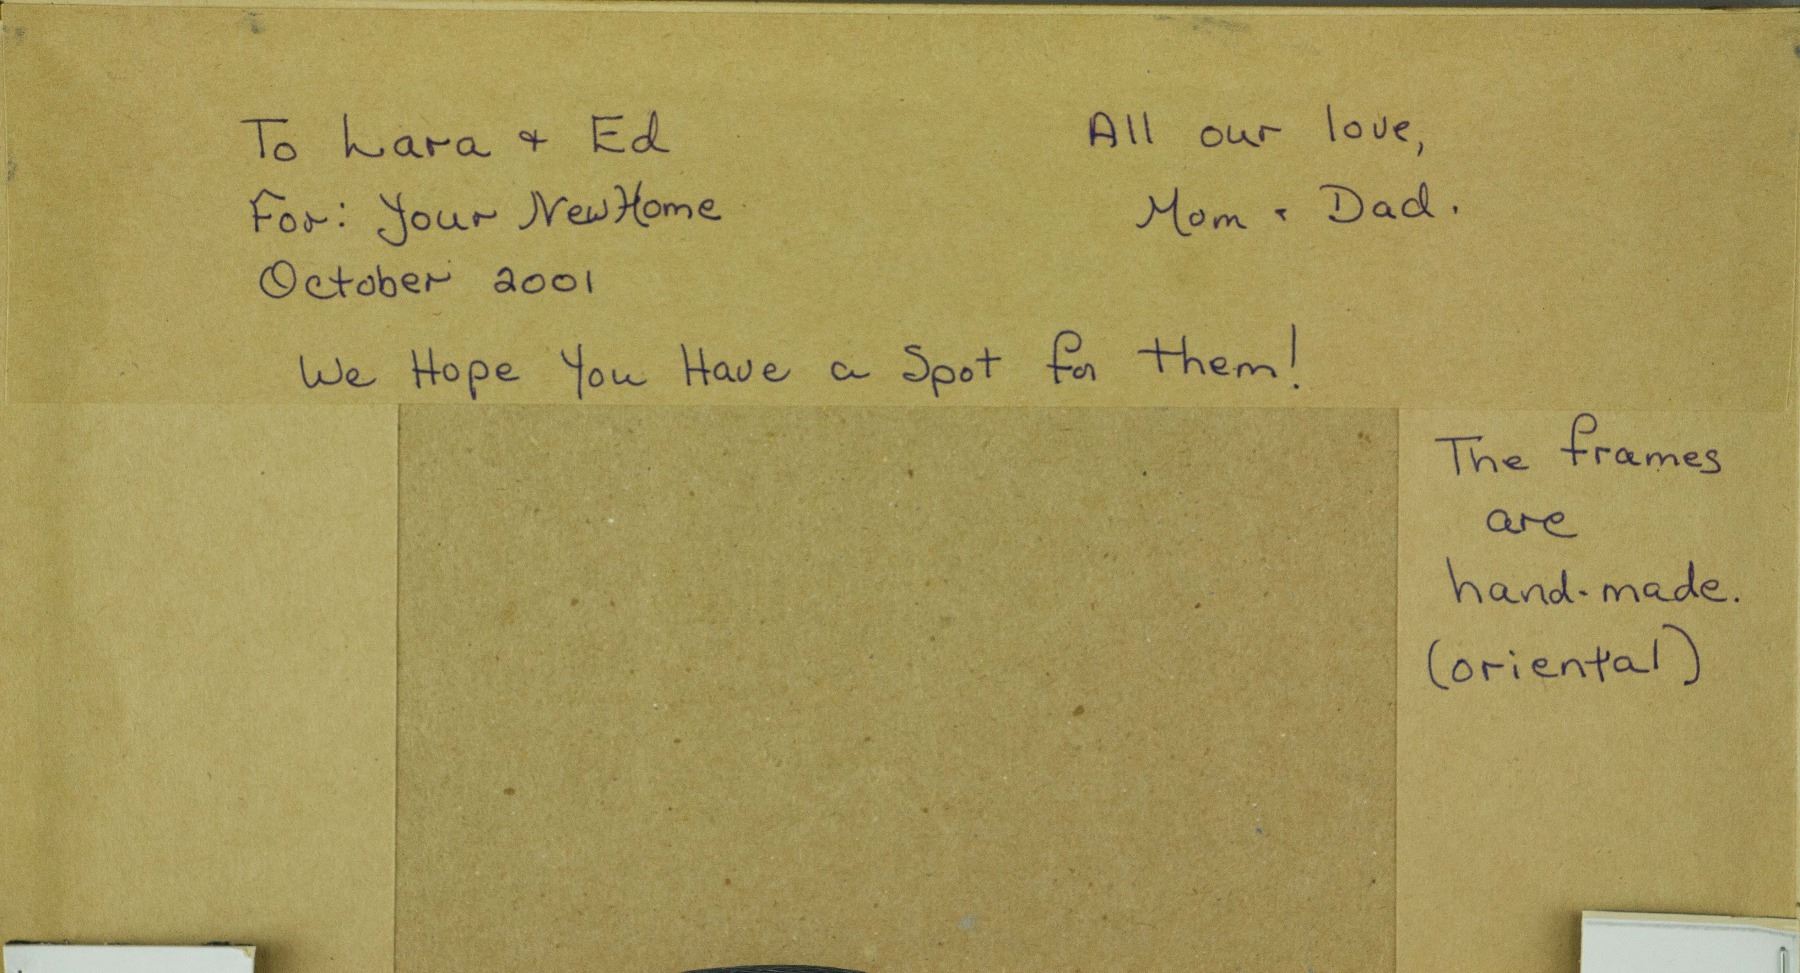 To Lara & Ed
For: Your New Home
October 2001
All our love,
Mom & Dad.
We Hope You Have a Spot for them!
The frames
are
hand-made.
(oriental)